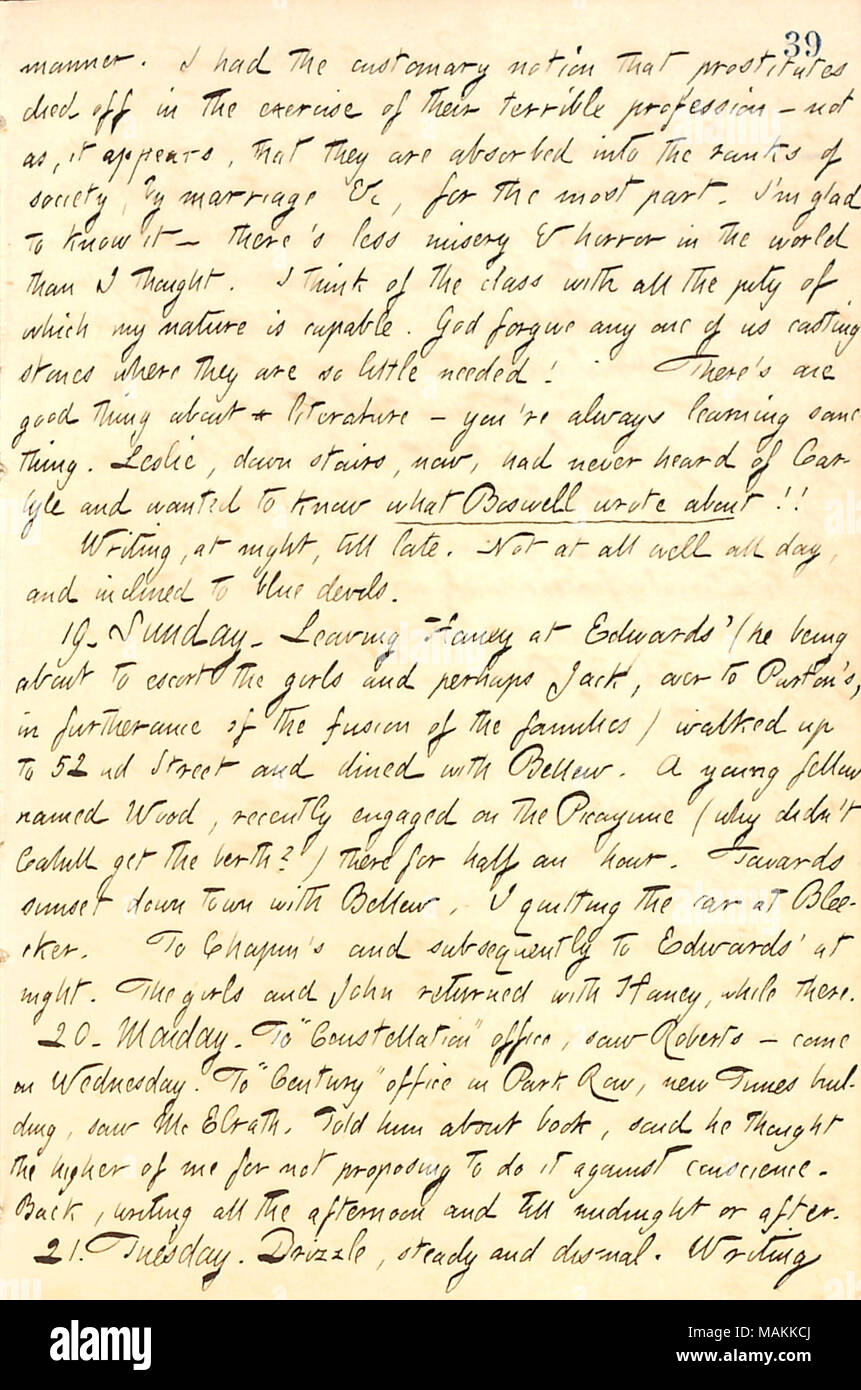 39
manner. I had the customary notion that prostitutes
died off in the exercise of their terrible profession — not
as, it appears, that they are absorbed into the ranks of
society, by marriage &c, for the most part. I'm glad
to know it — there's less misery & horror in the world
than I thought. I think of the class with all the pity of
which my nature is capable. God forgive any one of us casting
stones where they are so little needed! There's one
good thing about literature — you're always learning some-
thing. Leslie, down stairs, now, had never heard of Car-
lyle and wanted to know what Boswell wrote about!!
Writing, at night, till late. Not at all well all day,
and inclined to blue devils.
19. Sunday. Leaving Haney at Edwards' (he being
about to escort the girls and perhaps Jack, over to Parton's,
in furtherance of the fusion of the families) walked up
to 52nd Street and dined with Bellew. A young fellow
named Wood, recently engaged on the Picayune (why didn't
Cahill get the berth?) there for half an hour. Towards
sunset down town with Bellew, I quitting the car at Blee-
cker. To Chapin's and subsequently to Edwards' at
night. The girls and John returned with Haney, while there.
20. Monday. To "Constellation" office, saw Roberts — come
on Wednesday. To "Century" office in Park Row, new Times buil-
ding, saw McElrath. Told him about book, said he thought
the higher of me for not proposing to do it against conscience.
Back, writing all the afternoon and till midnight or after.
21. Tuesday. Drizzle, steady and dismal. Writing
alamy
Image ID: MAKKCJ
www.alamy.com